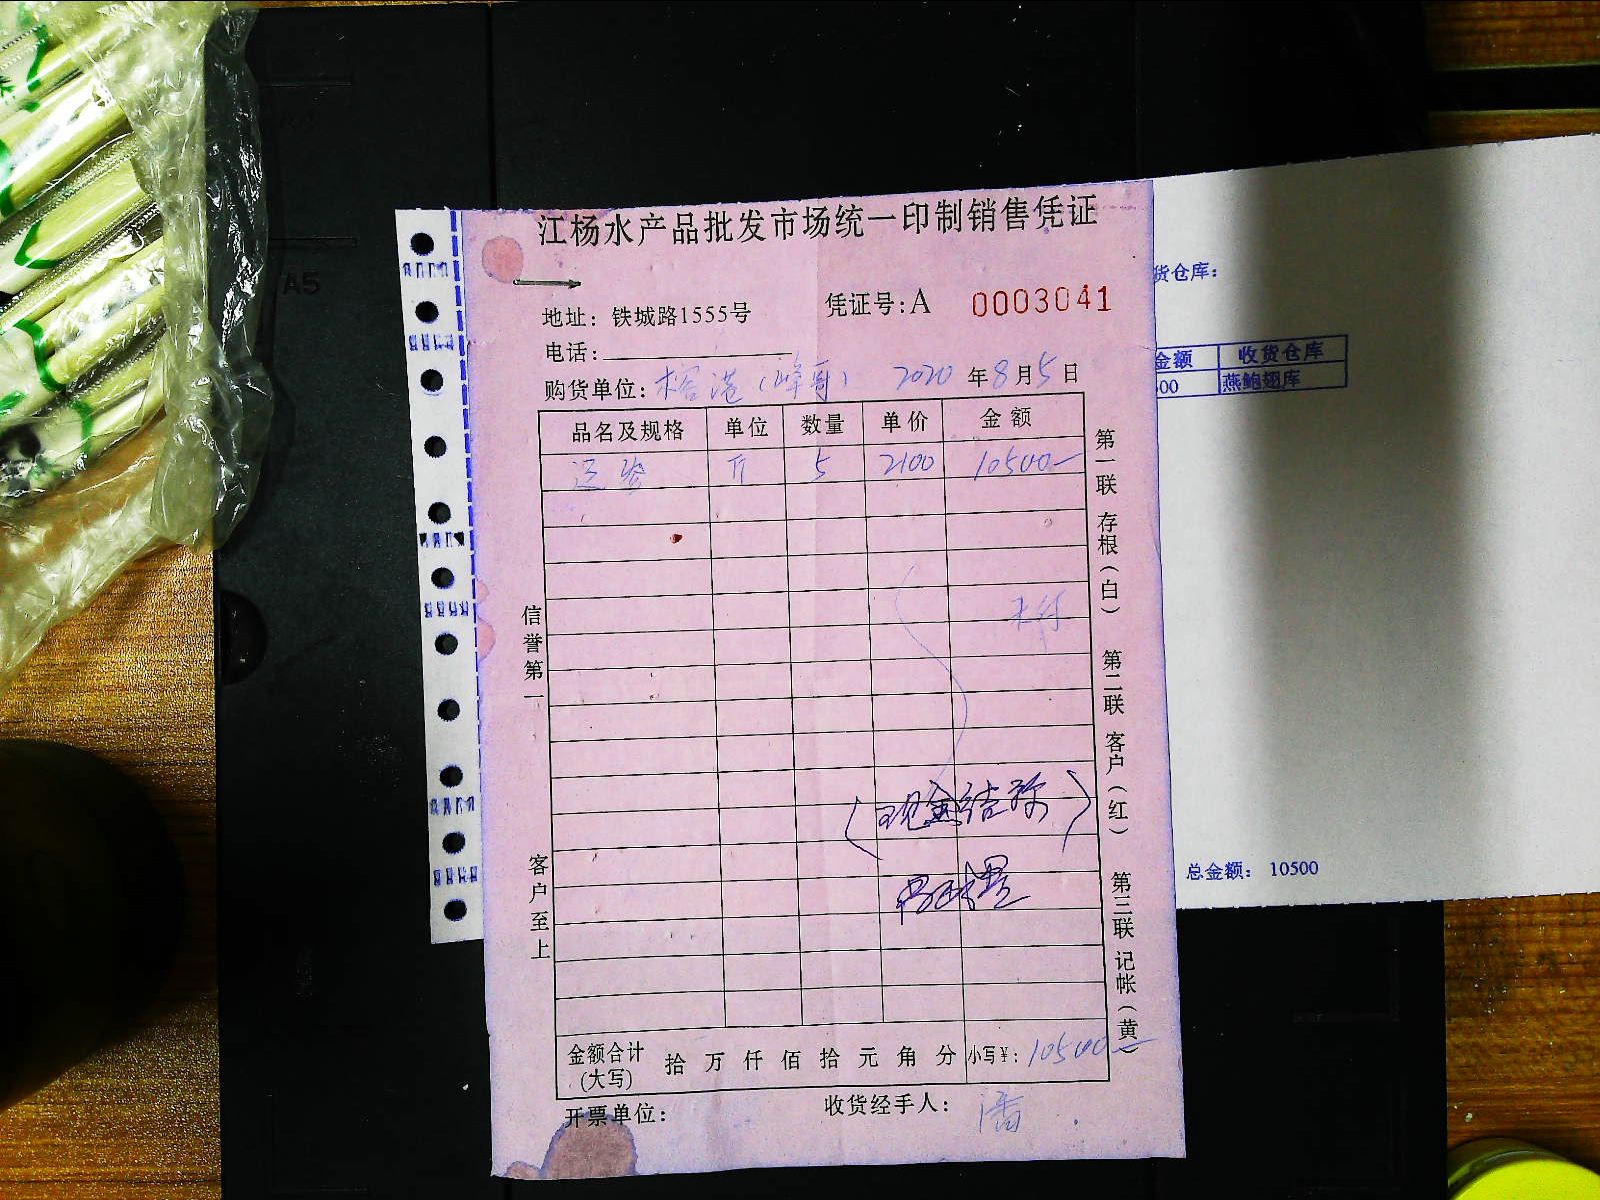 江杨水产品批发市场统一印制销售凭证
地址：铁城路1555号 凭证号：A 0003041
电话：
购货单位：榕港（峰哥） 2020年8月5日
品名及规格 单位 数量 单价 金额
斤 5 2100 10500
未付
（现金结
金额合计（大写） 拾 万 仟 佰 拾 元 角 分 小写¥：10500
开票单位： 收货经手人：潘
信誉第一
客户至上
第一联 存根（白） 第二联 客户（红） 第三联 记帐（黄）
货仓库：
金额 收货仓库
00 燕鲍翅库
总金额： 10500
A5